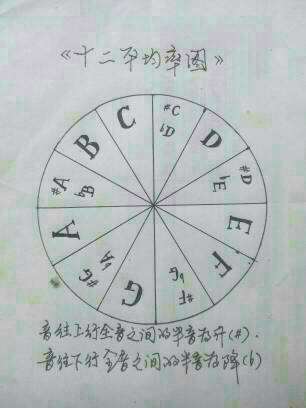 《十二平均率图》
C
#C
bD
D
#D
bE
E
F
#F
bG
G
#G
bA
A
#A
bB
B
音往上行全音之间的半音为升(#).
音往下行全音之间的半音为降(b)